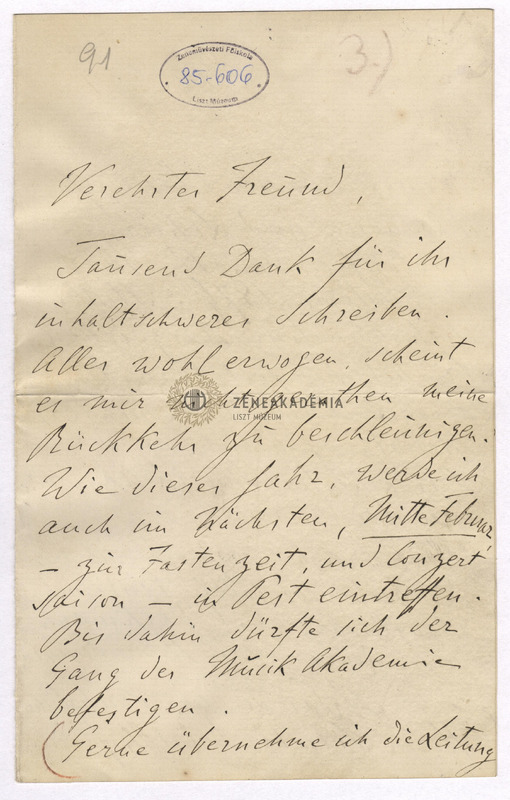 91
Zeneművészeti Főiskola
85-606
Liszt Múzeum
3.)
Verehrter Freund,
Tausend Dank für ihr
inhaltschweres Schreiben.
Alles wohl erwogen, scheint
es mir nicht gerathen meine
ZENEAKADÉMIA
LISZT MÚZEUM
Rückkehr zu beschleunigen.
Wie dieses Jahr, werde ich
auch im Nächsten, Mitte Februar,
– zur Fastenzeit, und Conzert
saison – in Pest eintreffen.
Bis dahin dürfte sich der
Gang der Musik Akademie
befestigen.
(Gerne übernehme ich die Leitung